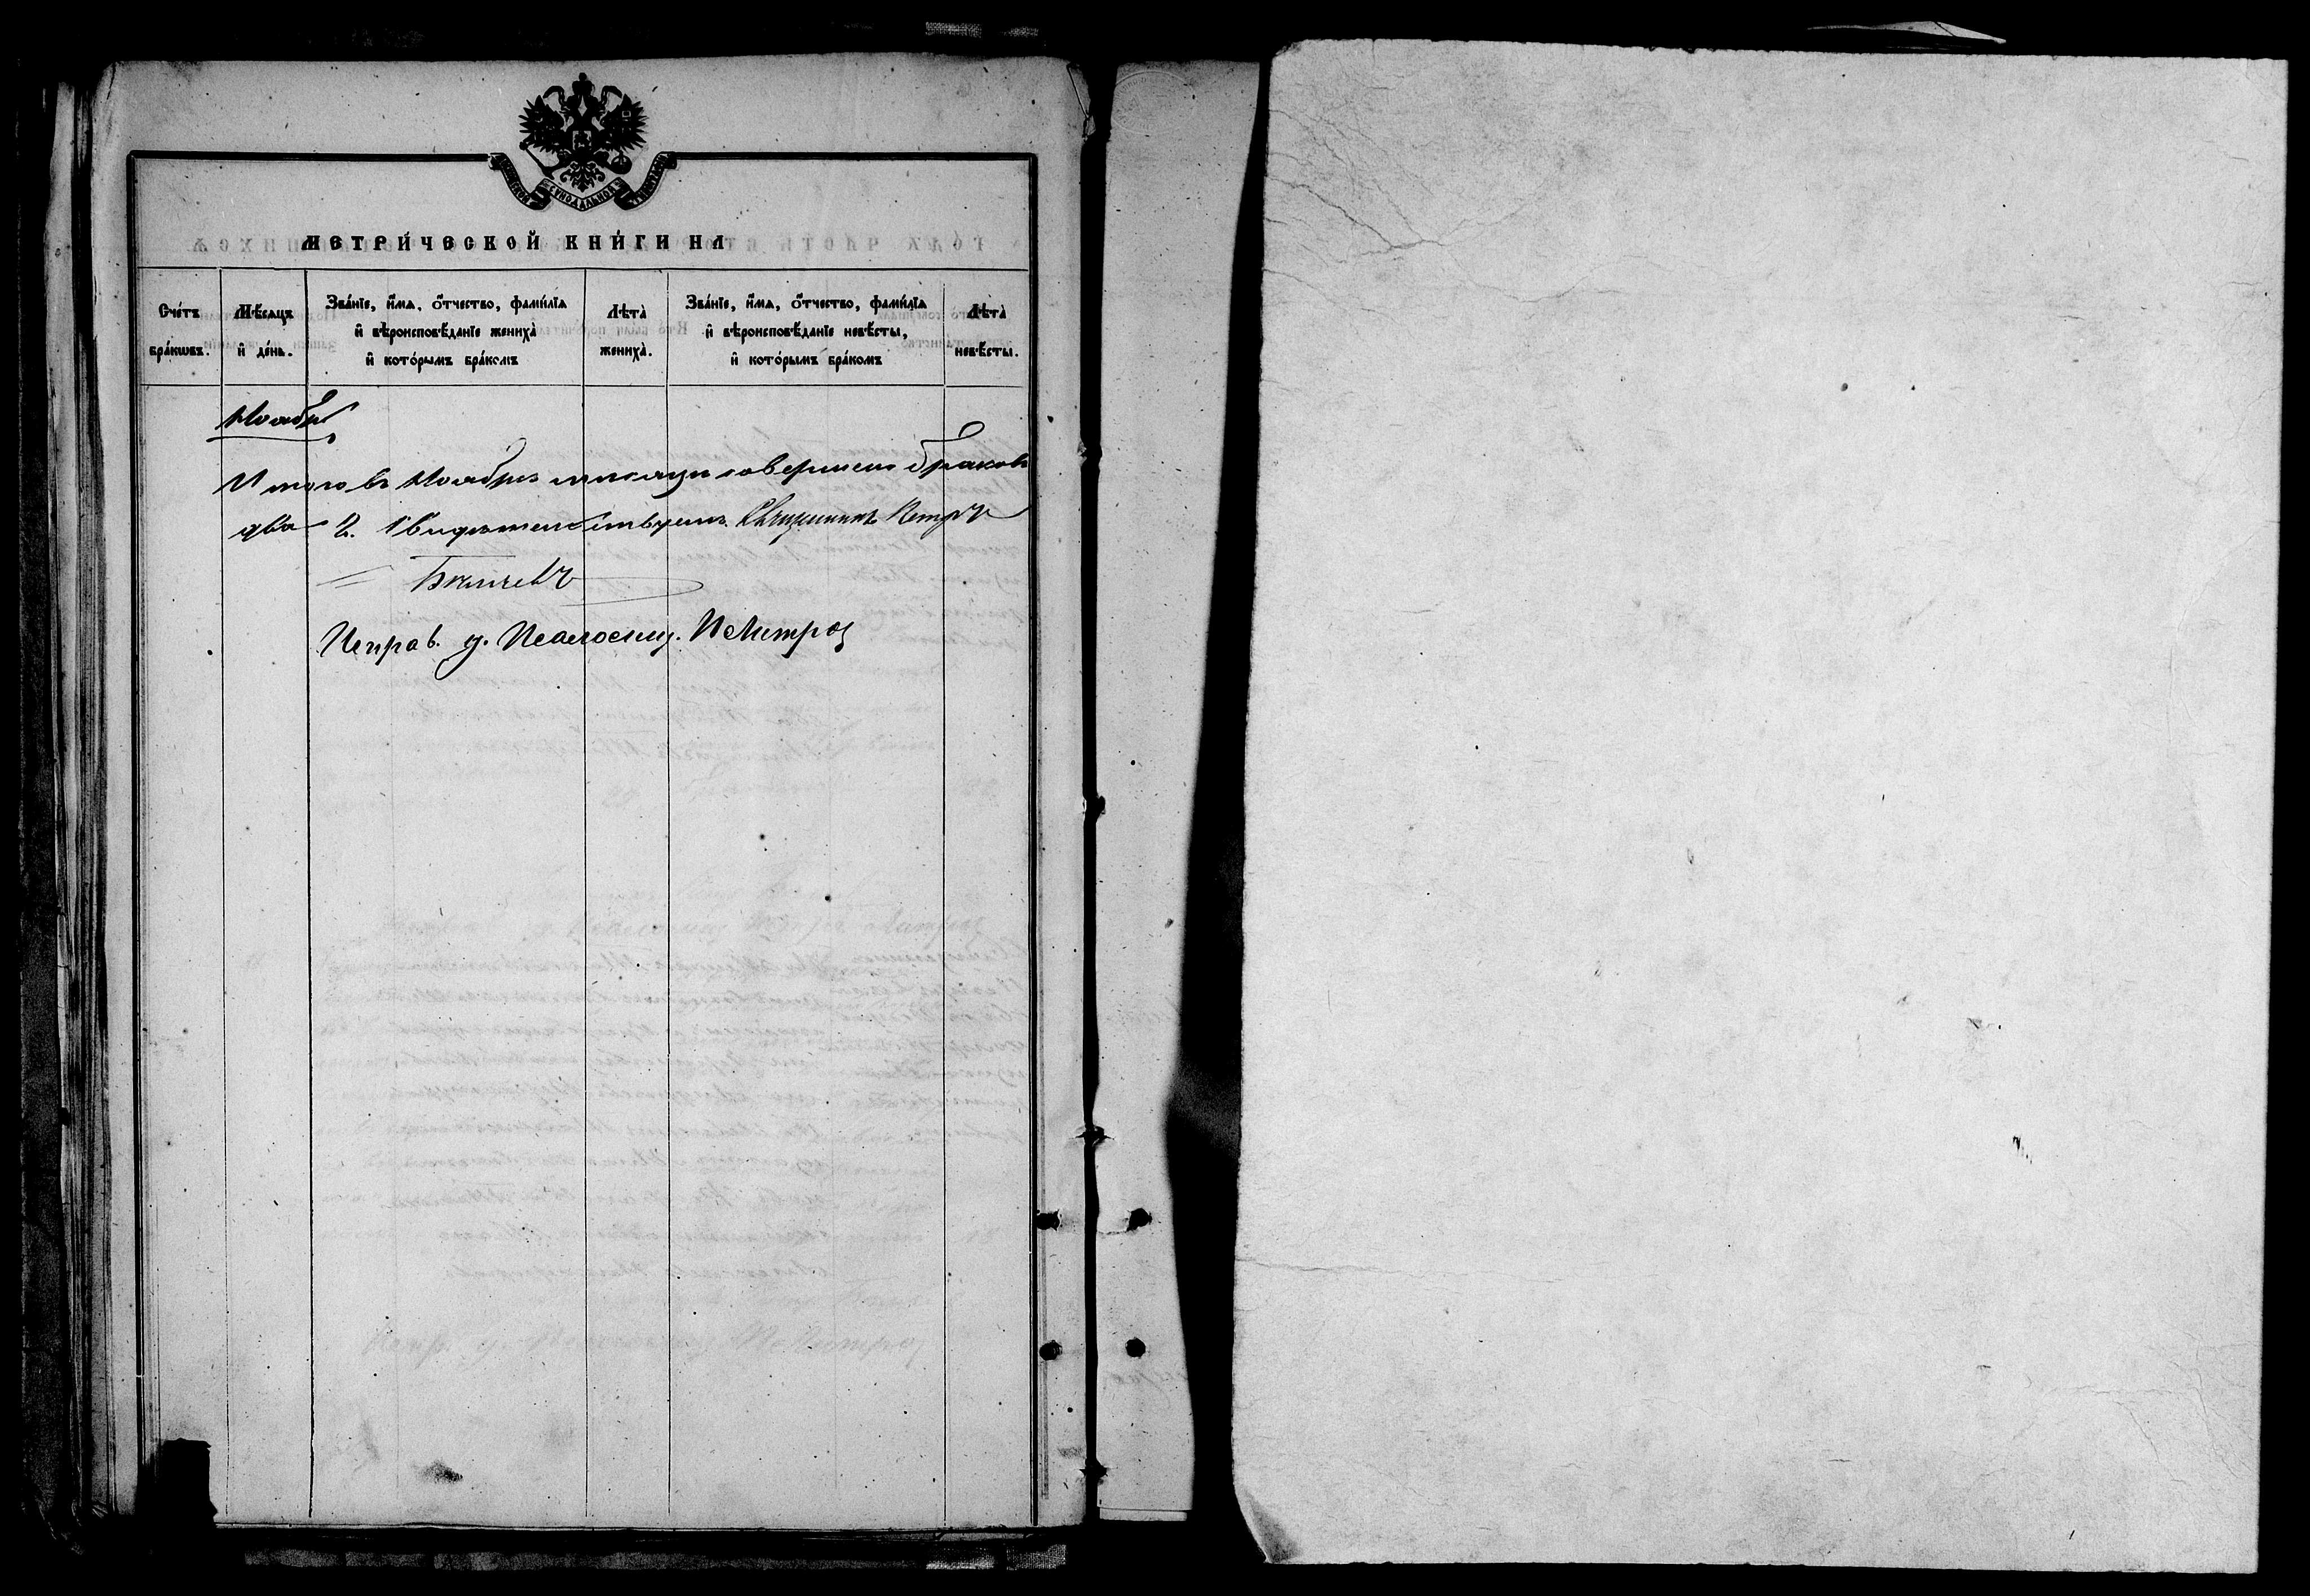 СѴНОДАЛЬНОЙ
МЕТРИ́ЧЕСКОЙ КНИ́ГИ НА
Сче́тъ бра́кωвъ.
Мѣ́сяцъ и҆ де́нь.
Зва́нїе, и҆́мя, ѻ҆́тчество, фами́лїя
и҆ вѣроисповѣ́данїе жениха̀
и҆ кото́рымъ бра́комъ
Лѣта̀ жениха̀.
Зва́нїе, и҆́мя, ѻ҆́тчество, фами́лїя
и҆ вѣроисповѣ́данїе невѣ́сты,
и҆ кото́рымъ бра́комъ
Лѣта̀ невѣ́сты.
Ноябрь
Итого въ Ноябрѣ мѣсяцѣ совершено браковъ
два 2. Свидѣтельствуемъ. Священникъ Петръ
Исправ. д. Псаломщ.